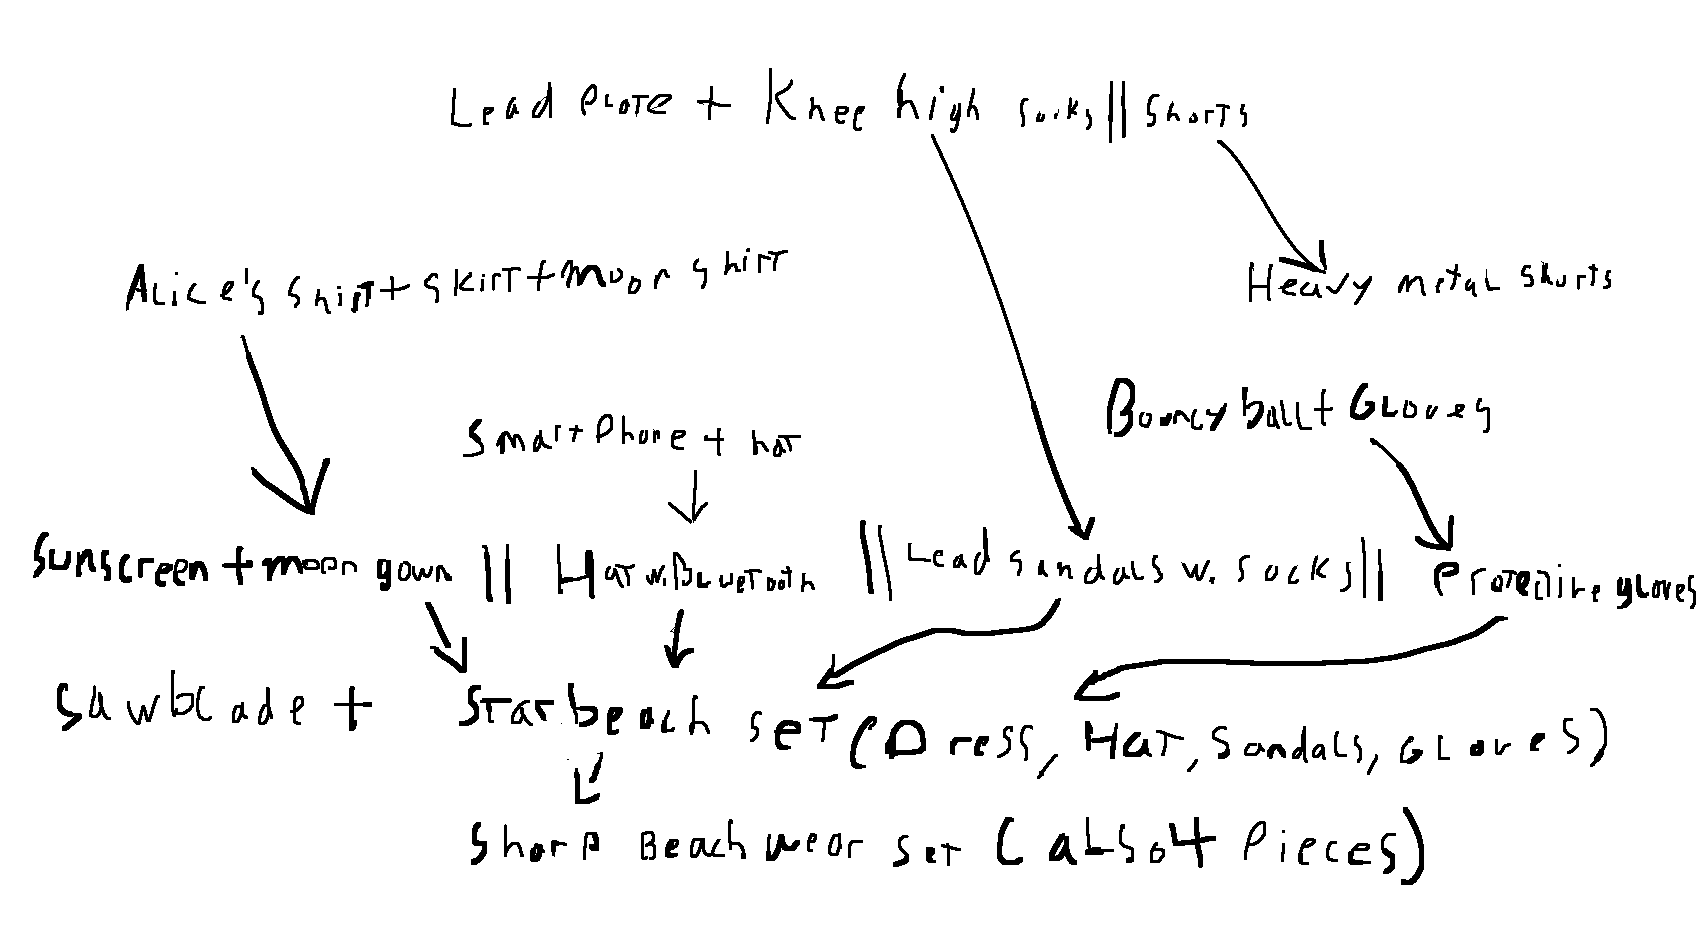 Lead PLaTe + Knee high socks || shorts
Alice's shirt + skirt + moon shirt
Heavy metal shorts
Bouncy ball + Gloves
Smart Phone + hat
Sunscreen + moon gown || Hat w. Bluetooth || Lead sandals w. socks || Protective gloves
Sawblade + Star beach set (Dress, Hat, Sandals, Gloves)
Sharp Beach wear set (also 4 Pieces)